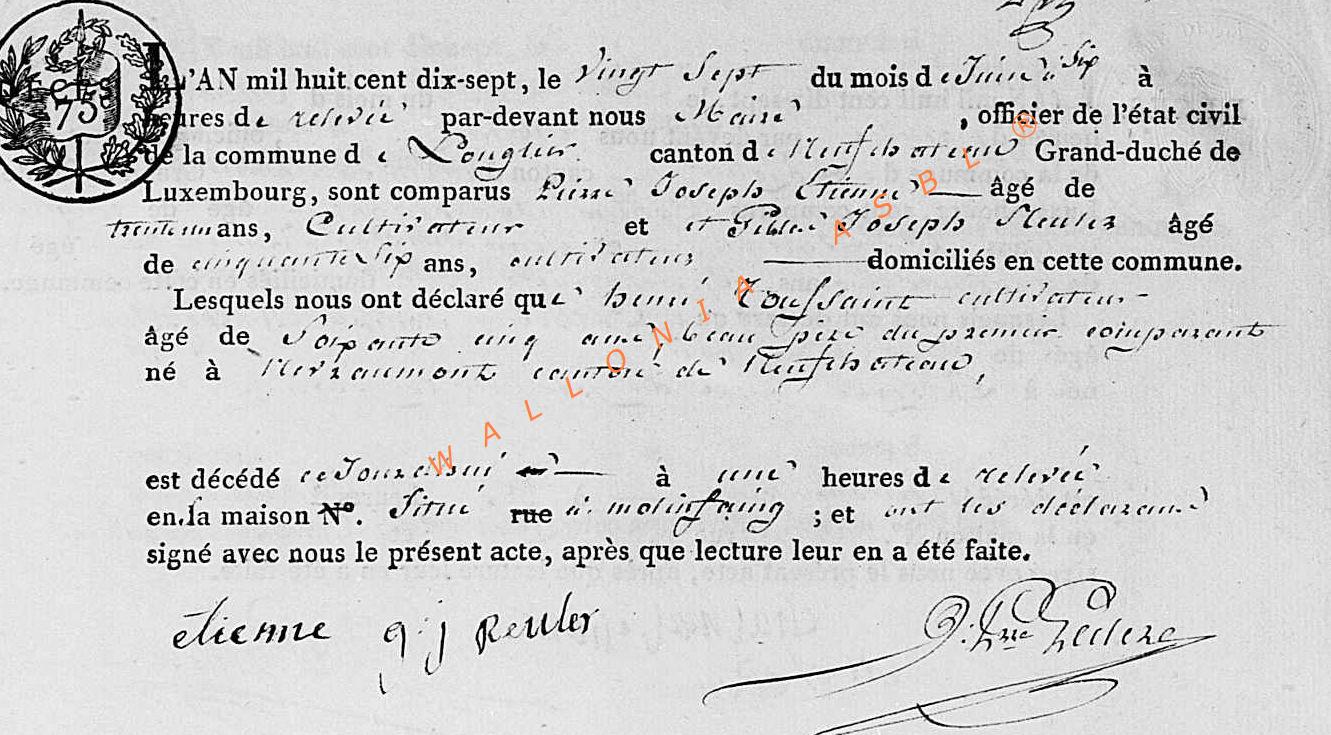 75
L'AN mil huit cent dix-sept, le Vingt Sept du mois de Juin à Six à
heures de relevée par-devant nous Maire , officier de l'état civil
de la commune de Longlier canton de Neufchateau Grand-duché de
Luxembourg, sont comparus Pierre Joseph Etienne âgé de
trente un ans, Cultivateur et et Joseph âgé
de cinquante Six ans, cultivateurs domiciliés en cette commune.
Lesquels nous ont déclaré que henri Toussaint cultivateur
âgé de Soixante cinq ans, beau père du premier comparant
né à canton de Neufchateau,
est décédé cejourd'hui à une heures de relevée
en la maison N°. Située rue à molinfaing ; et ont les déclarans
signé avec nous le présent acte, après que lecture leur en a été faite.
etienne g: j Reuler
WALLONIA ASBL ®